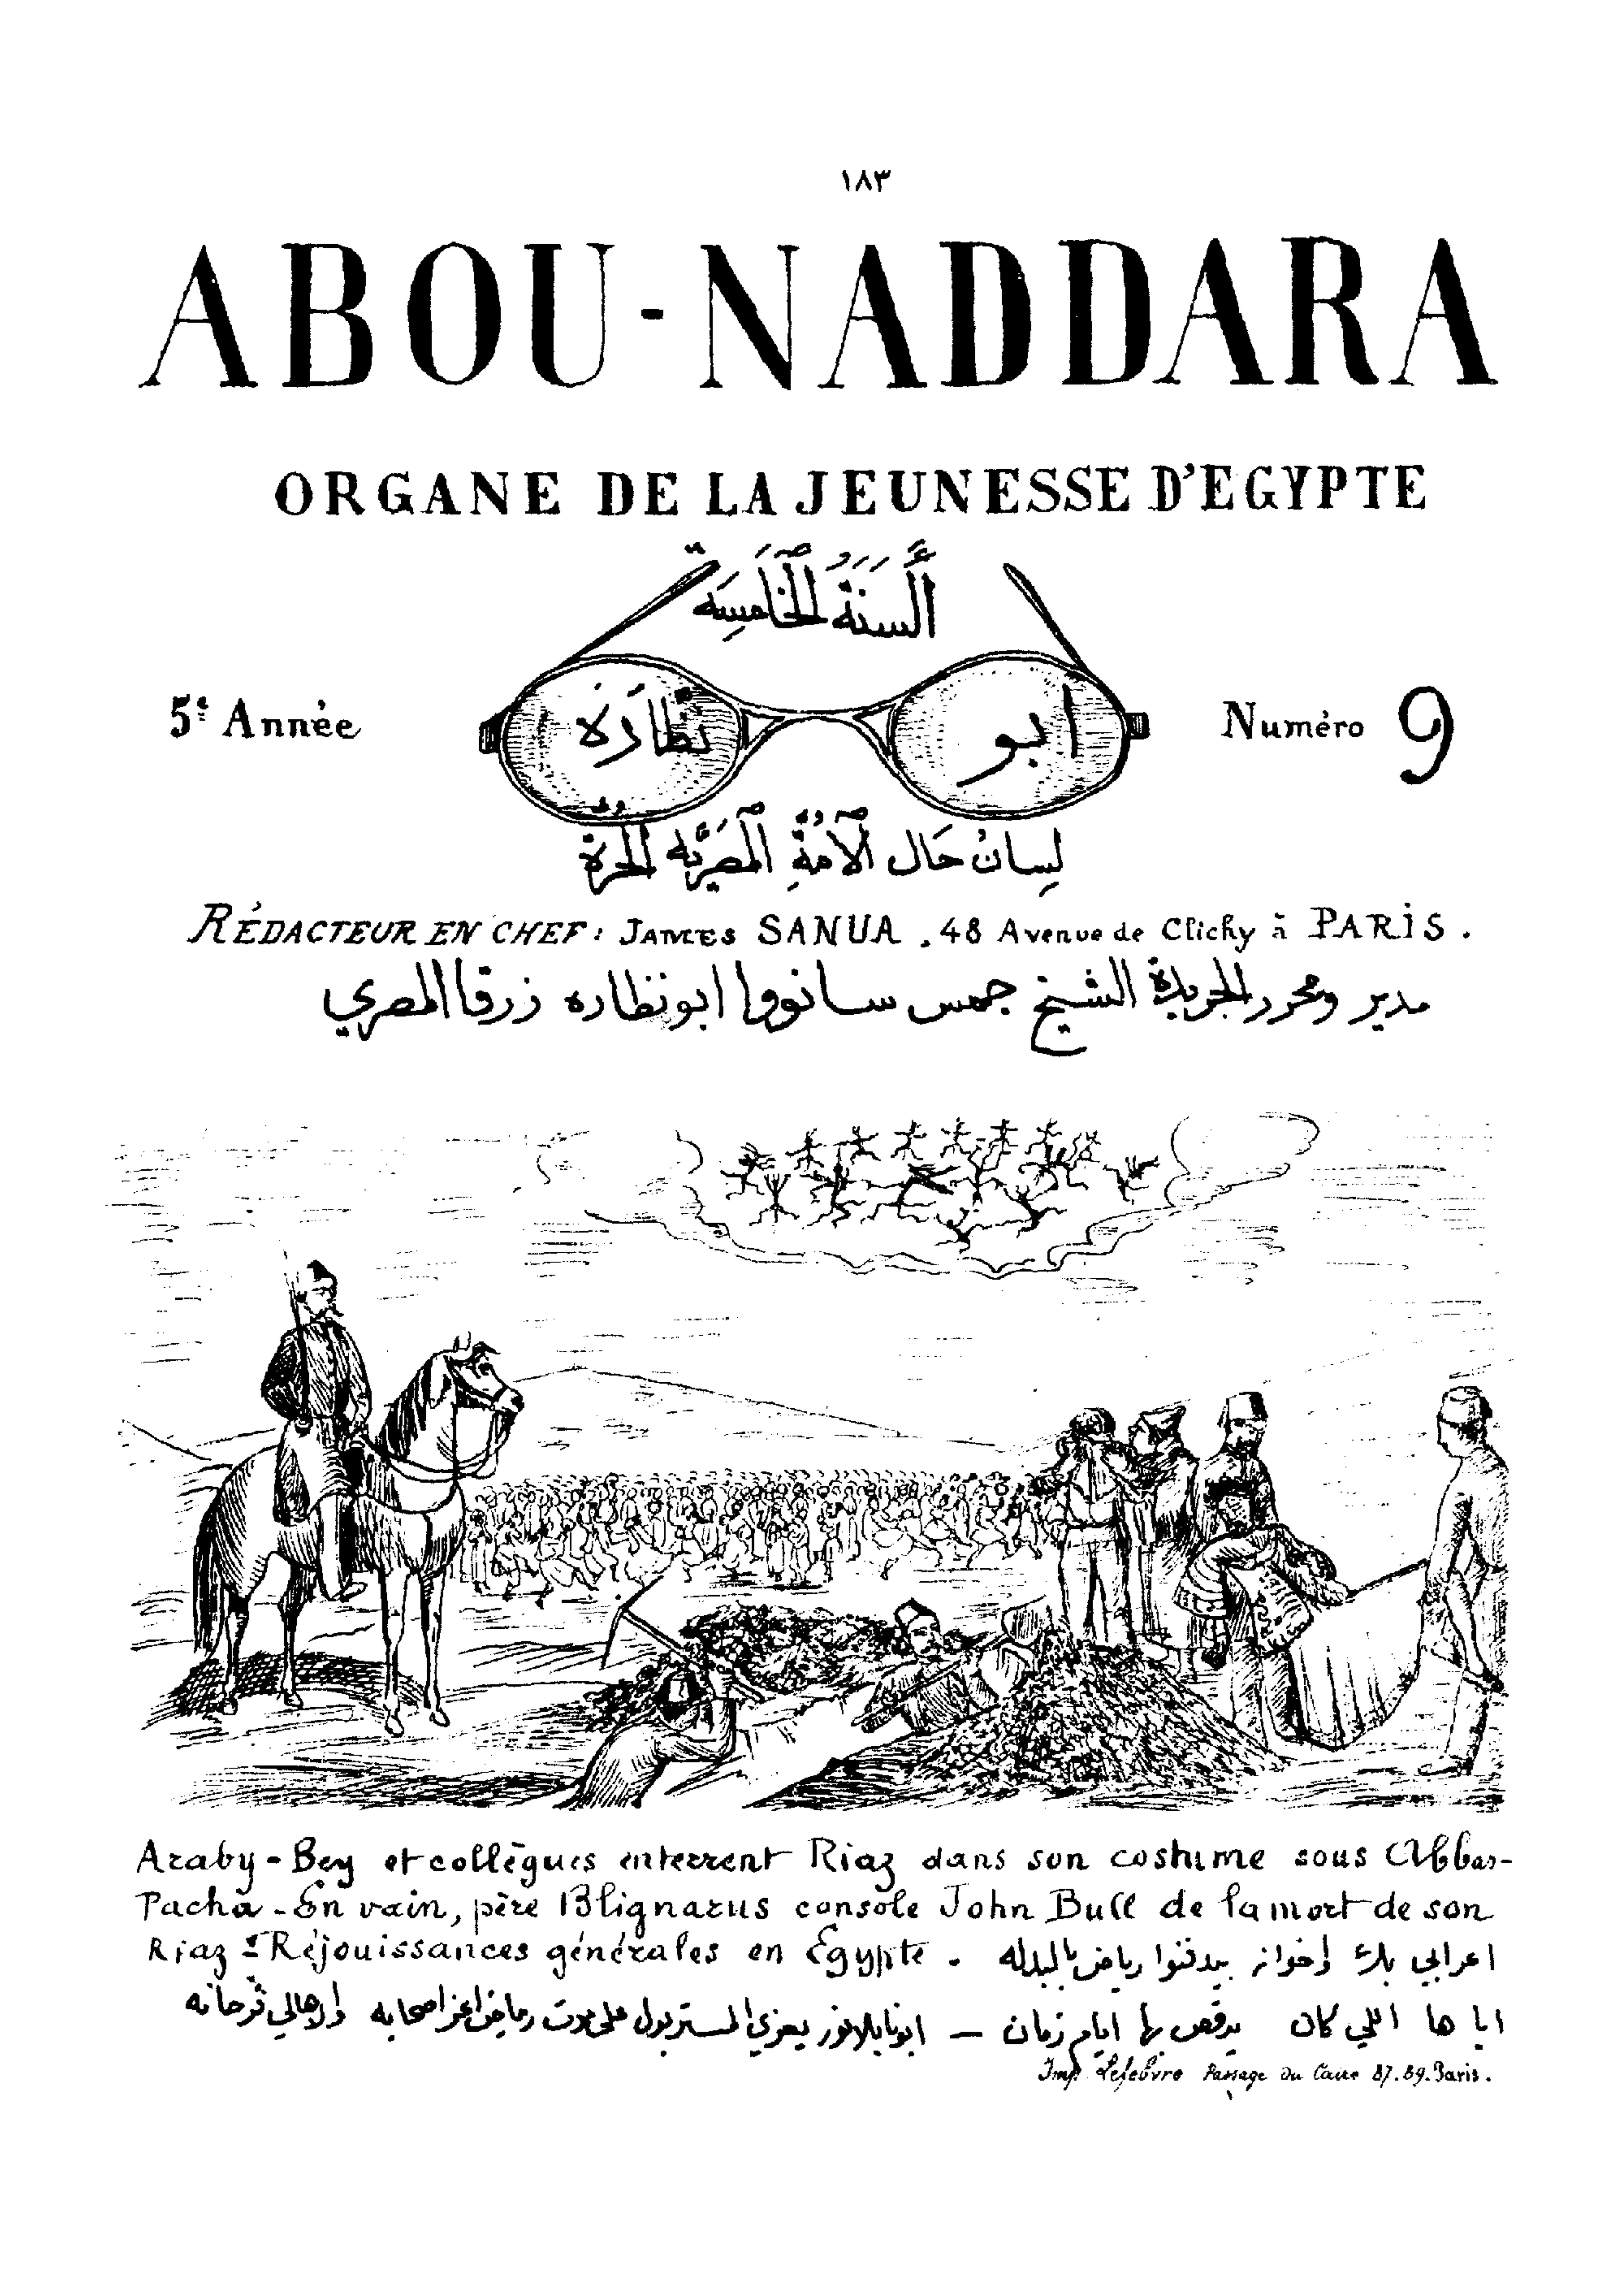 ١٨٣
ABOU-NADDARA
ORGANE DE LA JEUNESSE D'EGYPTE
أَلسَنَةُ الْخَامِسَة
5e Année
ابو نظارة
Numéro 9
لِسانُ حَال الْأُمَّةِ الْمَصْرِيَّة الْحُرَّة
RÉDACTEUR EN CHEF: JAMES SANUA, 48 Avenue de Clichy à PARIS.
مدير ومحرر الجريدة الشيخ جمس سانووا ابو نظاره زرقا المصري
Araby-Bey et collègues enterrent Riaz dans son costume sous Abbas-
Pacha - En vain, père Blignarus console John Bull de la mort de son
Riaz - Réjouissances générales en Egypte. اعرابي بك وأخوانه بيدفنوا رياض بالبدله
اياها اللي كان يرقص بها ايام زمان — ابونا بلانوز يعزي المستر بول على موت رياض اعز اصحابه والاهالي فرحانه
Imp Lefebvre Passage du Caire 87.89. Paris.